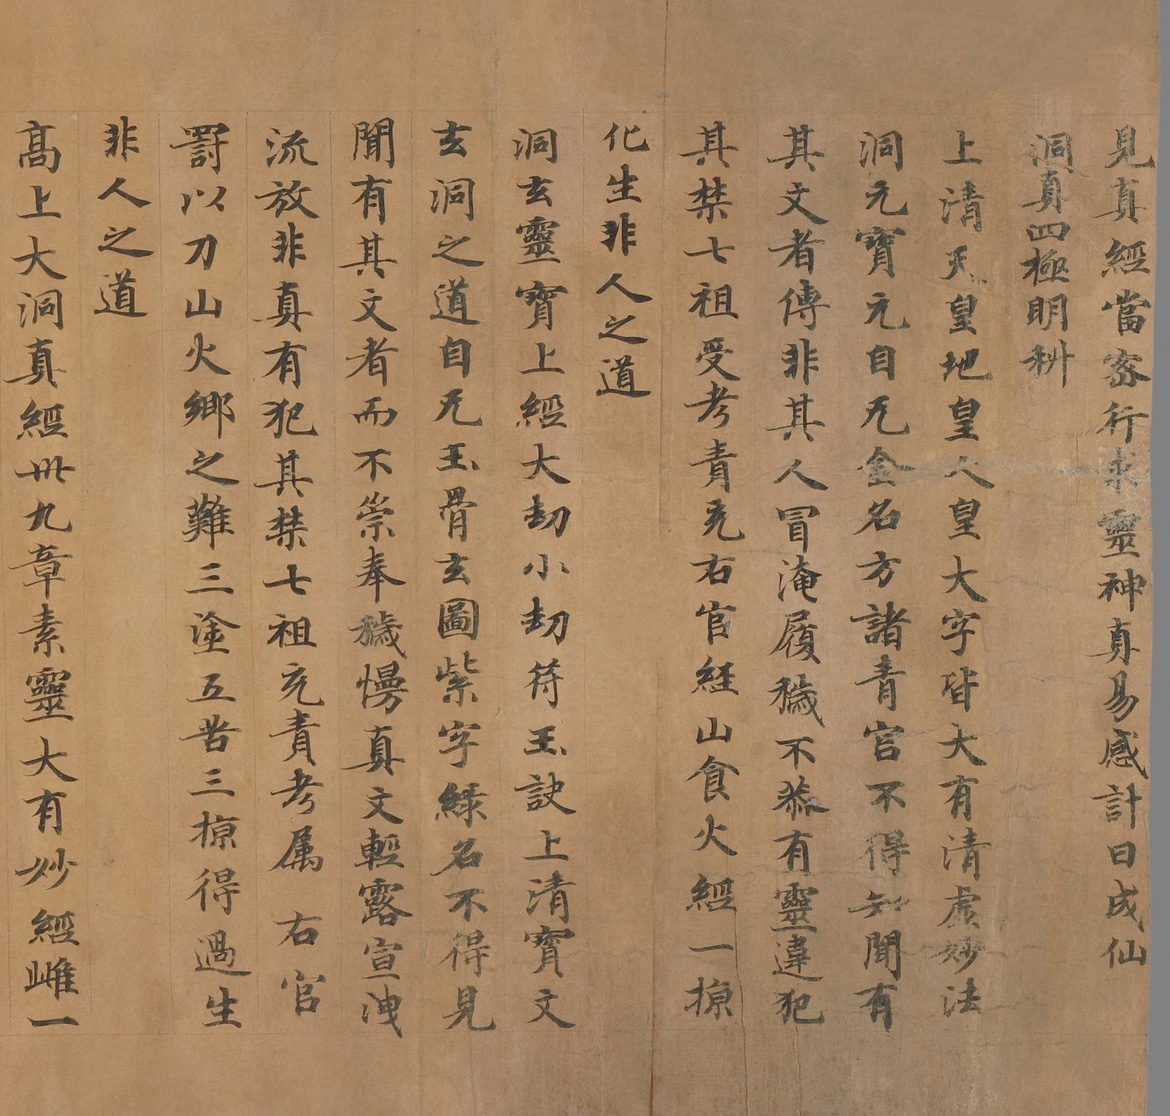 見真經當密行求靈神真易感計日成仙
洞真四極明科
上清天皇地皇人皇大字皆大有清虛妙法
洞元寶元自无金名方諸青宮不得知聞有
其文者傳非其人冒淹履穢不恭有靈違犯
其禁七祖受考責充右官經山食火經一掠
化生非人之道
洞玄靈寶上經大劫小劫符玉訣上清寶文
玄洞之道自无玉骨玄圖紫字綠名不得見
聞有其文者而不崇奉穢慢真文輕露宣洩
流放非真有犯其禁七祖充責考属右官
罸以刀山火鄉之難三塗五苦三掠得過生
非人之道
髙上大洞真經卅九章素靈大有妙經雌一